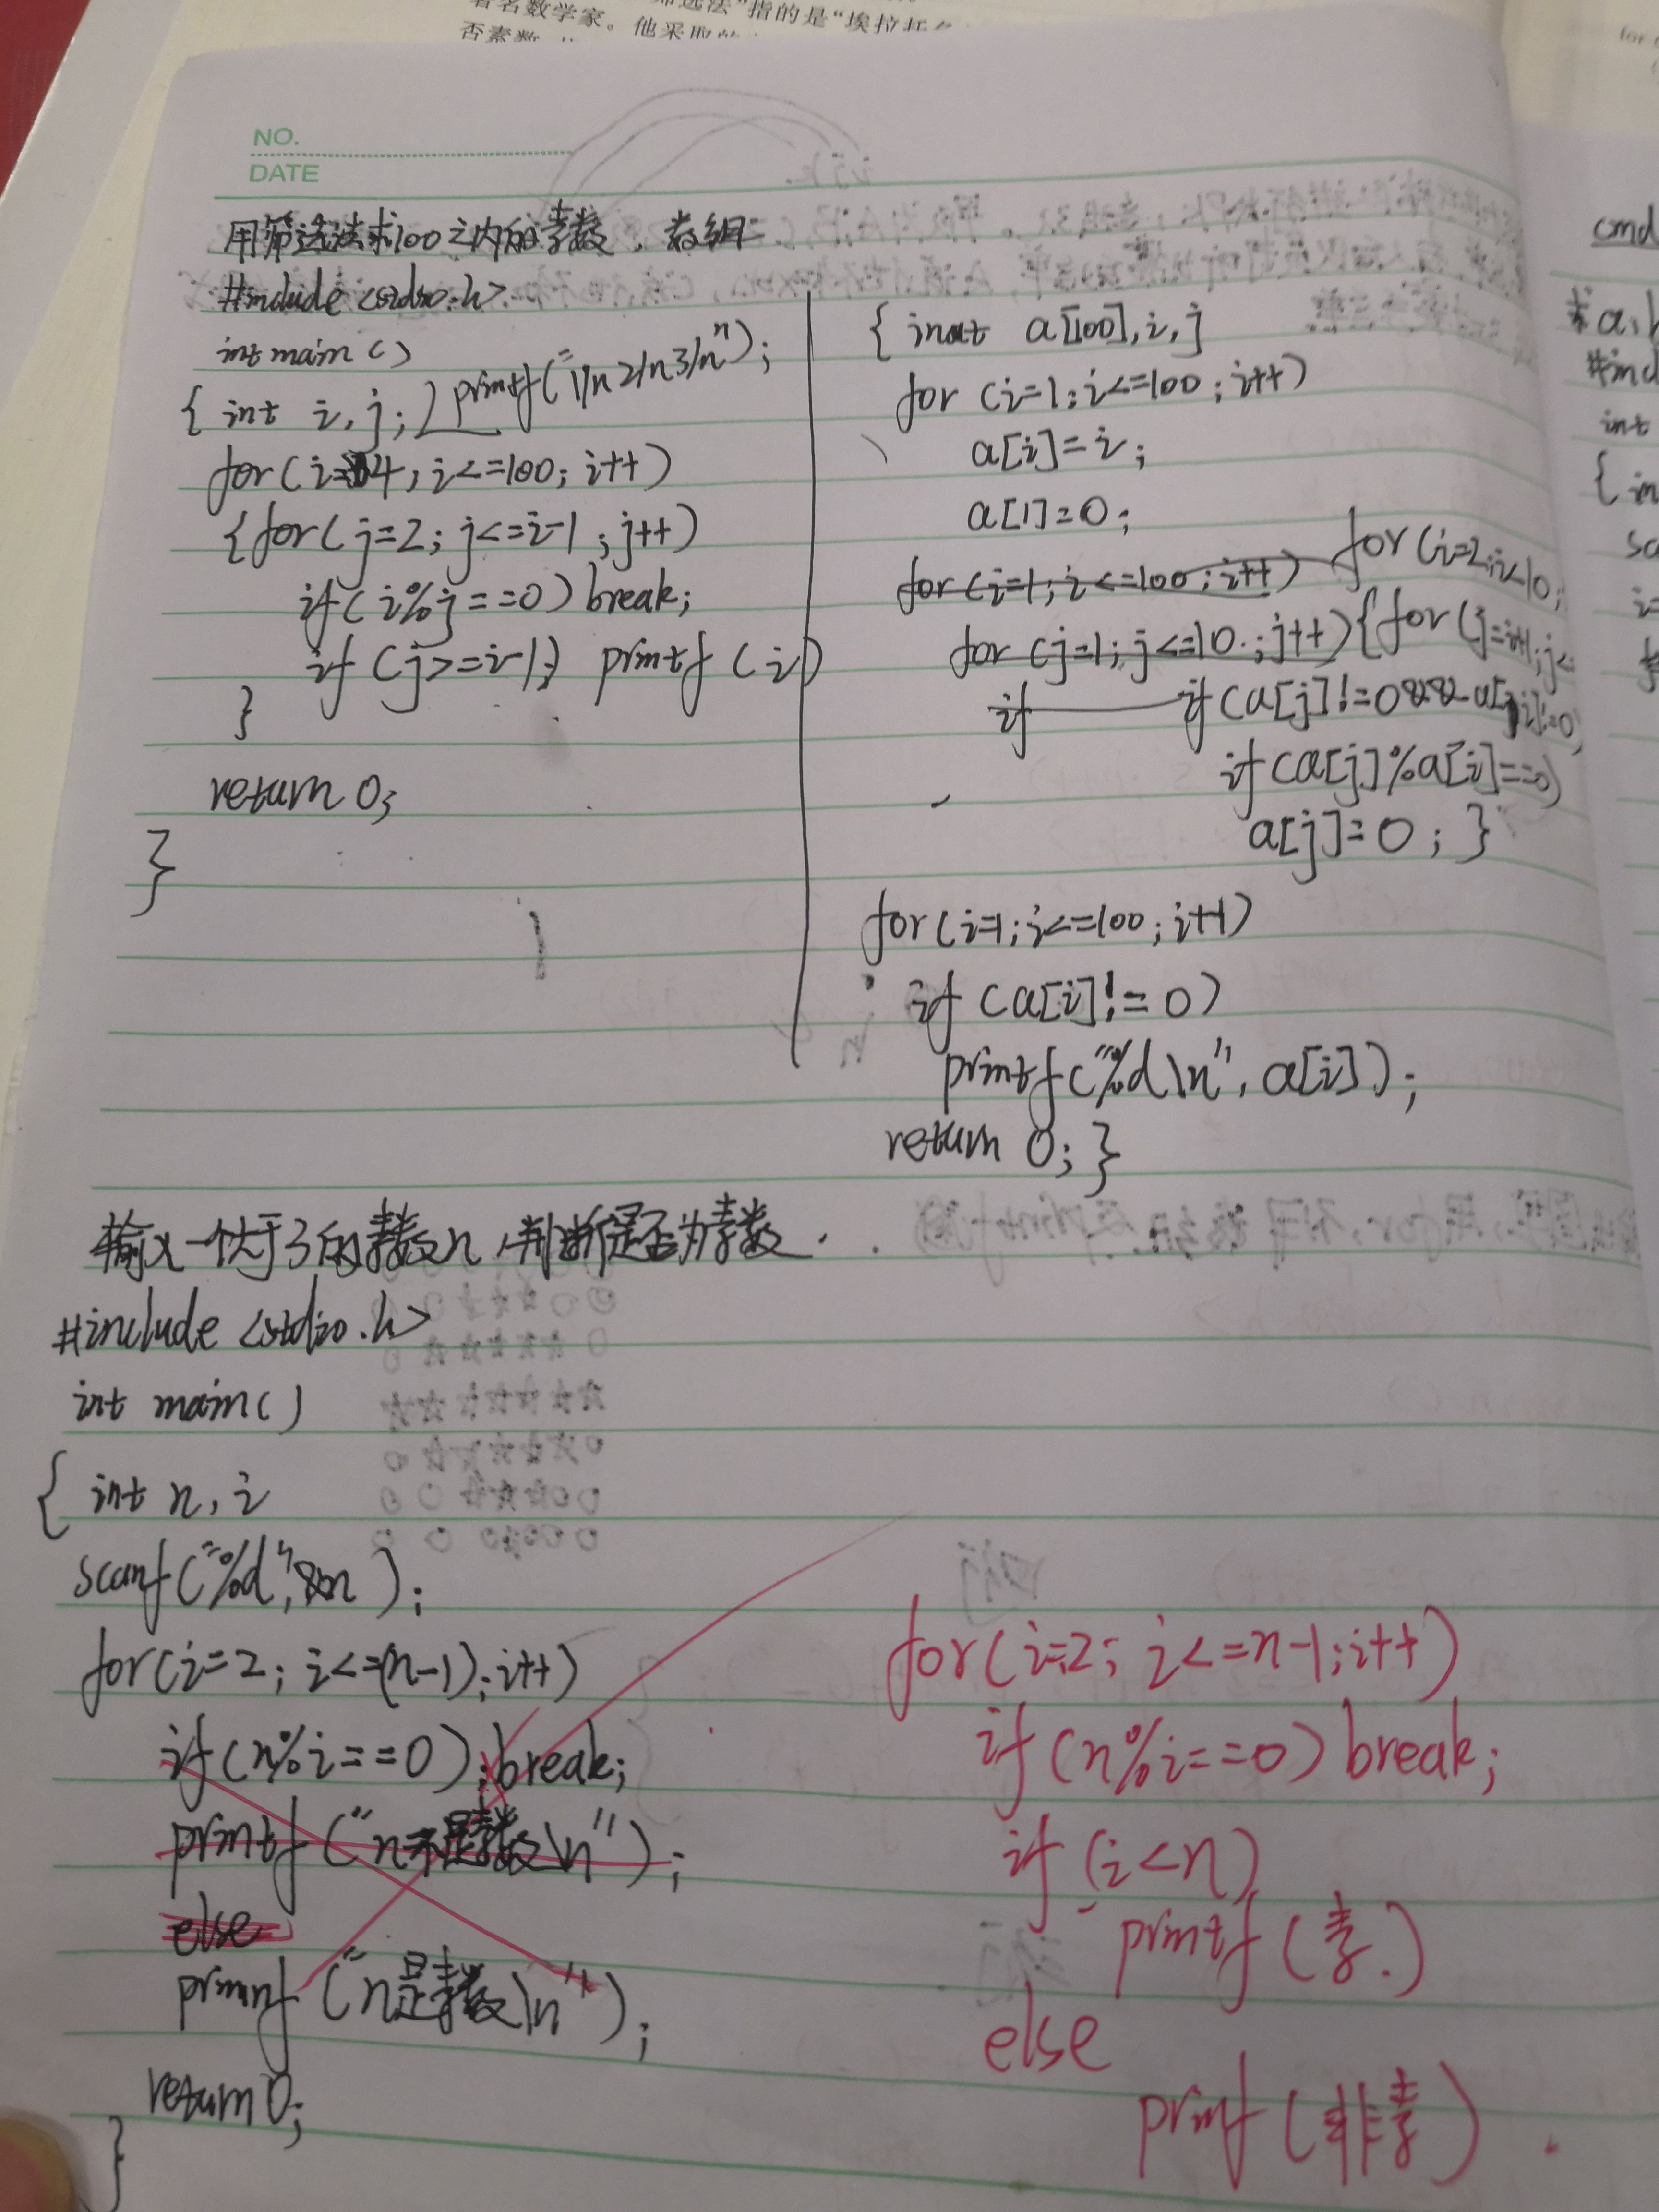 著名数学家。他采取的
法”指的是“埃拉托
否素数
for
NO.
DATE
用筛选法求100之内的素数，数组
#include <stdio.h>
int main()
{ int i, j; printf("1/n2/n3/n");
for(i=4; i<=100; i++)
{for(j=2; j<=i-1; j++)
if(i%j==0) break;
if(j>=i-1;) printf(i)
}
return 0;
}
{ int a[100],i,j
for (i=1; i<=100; i++)
a[i]=i;
a[1]=0;
for (i=1; i<=100; i++) for(i=2;i<10;
for (j=1; j<=10; j++){for(j=i+1;j<
if if(a[j]!=0&&a[i]!=0)
if(a[j]%a[i]==0)
a[j]=0; }
for(i=1;i<=100;i++)
if(a[i]!=0)
printf("%d\n",a[i]);
return 0; }
输入一个大于3的素数n,判断是否为素数.
#include <stdio.h>
int main()
{ int n, i
scanf("%d",&n);
for(i=2; i<=(n-1); i++)
if(n%i==0); break;
printf("n不是素数\n");
else
prinnf("n是素数\n");
return 0;
}
for(i=2; i<=n-1; i++)
if(n%i==0) break;
if (i<n)
printf(素.)
else
prinf(非素).
cmd
#incl
int
{in